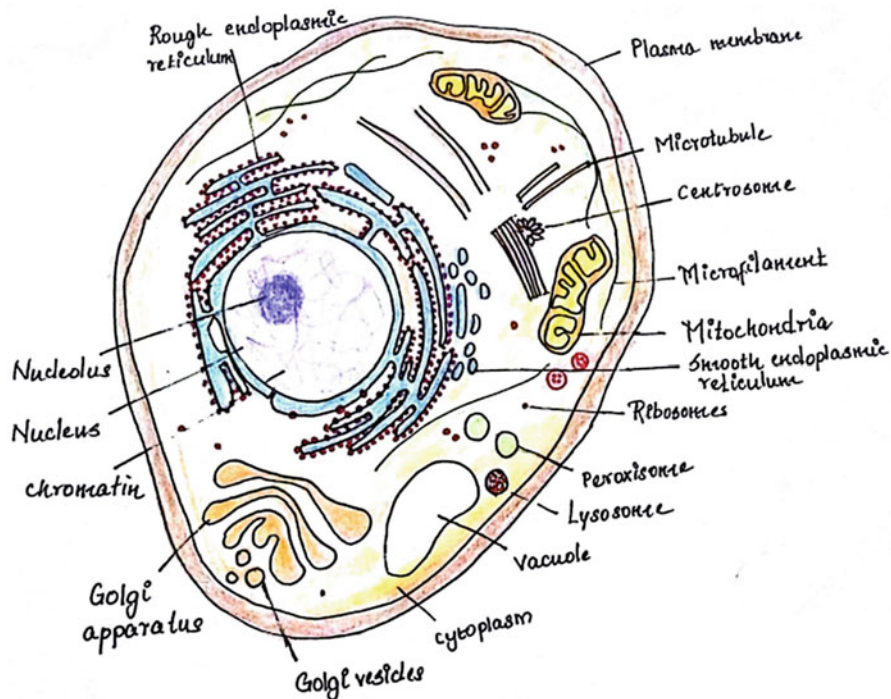 Rough endoplasmic
reticulum
Plasma membrane
Microtubule
Centrosome
Microfilament
Mitochondria
Smooth endoplasmic
reticulum
Ribosomes
Peroxisome
Lysosome
Vacuole
Cytoplasm
Golgi vesicles
Golgi
apparatus
Chromatin
Nucleus
Nucleolus